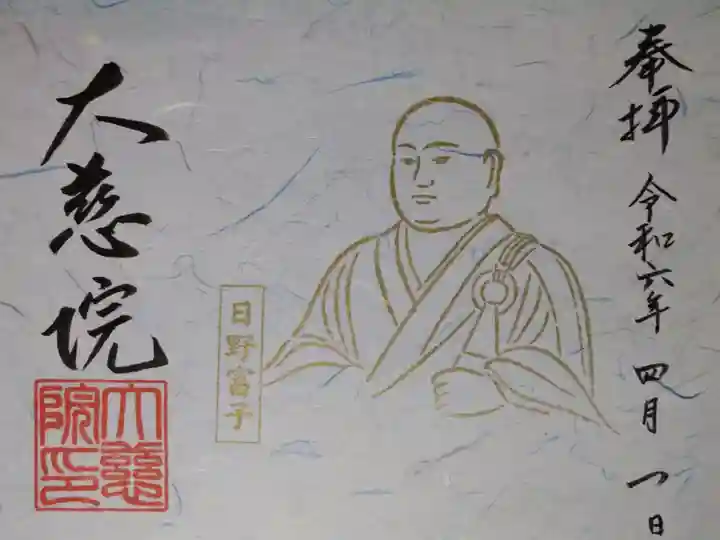 奉拝
令和六年 四月 一日
日野富子
大慈院
大慈院印